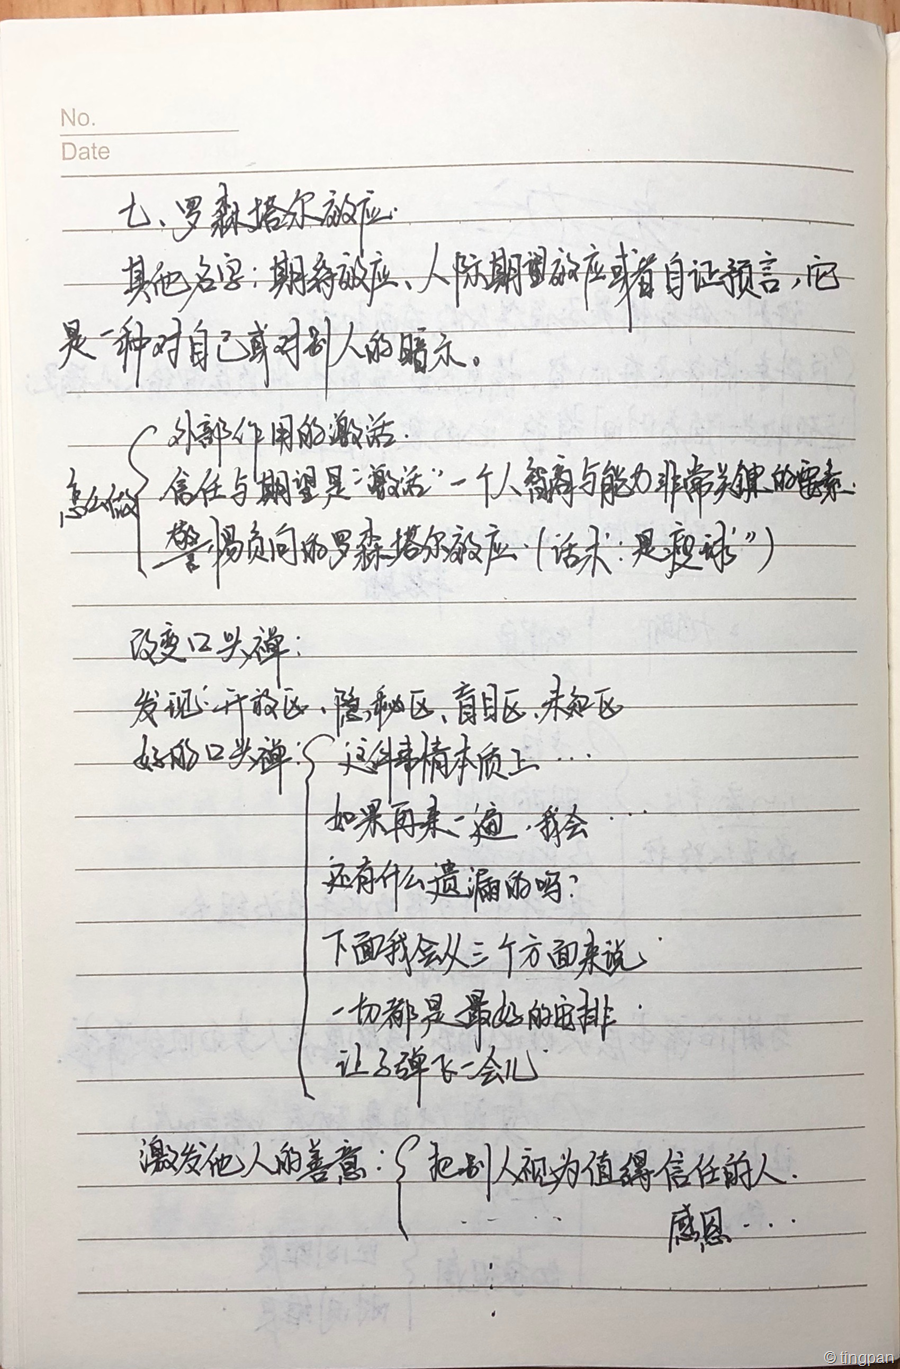 No.
Date
七、罗森塔尔效应.
其他名字：期待效应、人际期望效应或者自证预言，它
是一种对自己或对别人的暗示。
怎么做
外部作用的激活.
信任与期望是“激活”一个人智商与能力非常关键的要素.
警惕负向的罗森塔尔效应.（话术：是
改变口头禅：
发现：开放区、隐秘区、盲目区、未知区
好的口头禅：
这件事情本质上…
如果再来一遍，我会…
还有什么遗漏的吗？
下面我会从三个方面来说
一切都是最好的安排
让子弹飞一会儿
激发他人的善意：
把别人视为值得信任的人.
感恩…
© tingpan